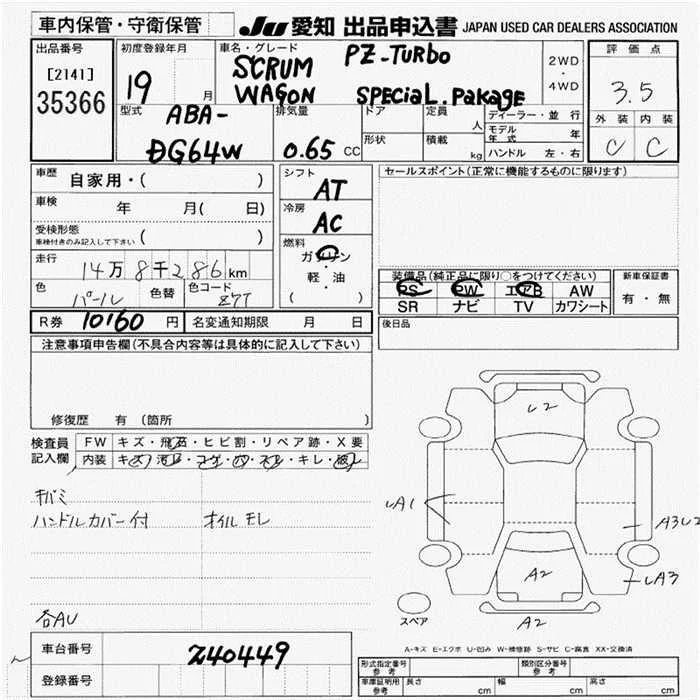 車内保管・守衛保管 JU 愛知 出品申込書 JAPAN USED CAR DEALERS ASSOCIATION
出品番号 初度登録年月 車名・グレード 評価点
[2141] 35366 19 月 SCRUM WAGON PZ-TURBO SPECIAL. PAKAGE 2WD・4WD 3.5
型式 ABA-DG64W 排気量 0.65 CC ドア 定員 人 ディーラー・並行 外装 内装
形状 積載 kg モデル年式 年 C C
ハンドル 左・右
車歴 自家用・( ) シフト AT セールスポイント(正常に機能するものに限ります)
車検 年 月( 日) 冷房 AC
受検形態 車検付きのみ記入して下さい ( ) 燃料 ガソリン
走行 14万8千286km 軽・油
色 パール 色替 色コード Z7T ( )
装備品(純正品に限り○をつけてください) 新車保証書
PS PW エアB AW 有・無
SR ナビ TV カワシート
R券 10160 円 名変通知期限 月 日 後日品
注意事項申告欄(不具合内容等は具体的に記入して下さい)
修復歴 有 (箇所 )
検査員記入欄 FW キズ・飛石・ヒビ割・リペア跡・X要
内装
キバミ
ハンドルカバー付 オイルモレ
各AU
U2
A1
A3U2
A2
A3
スペア A2
A-キズ E-エクボ U-凹み W-補修跡 S-サビ C-腐食 XX-交換済
車台番号 240449 形式指定番号 参考 類別区分番号 参考
登録番号 車庫証明用 参考 長さ cm 幅 cm 高さ cm